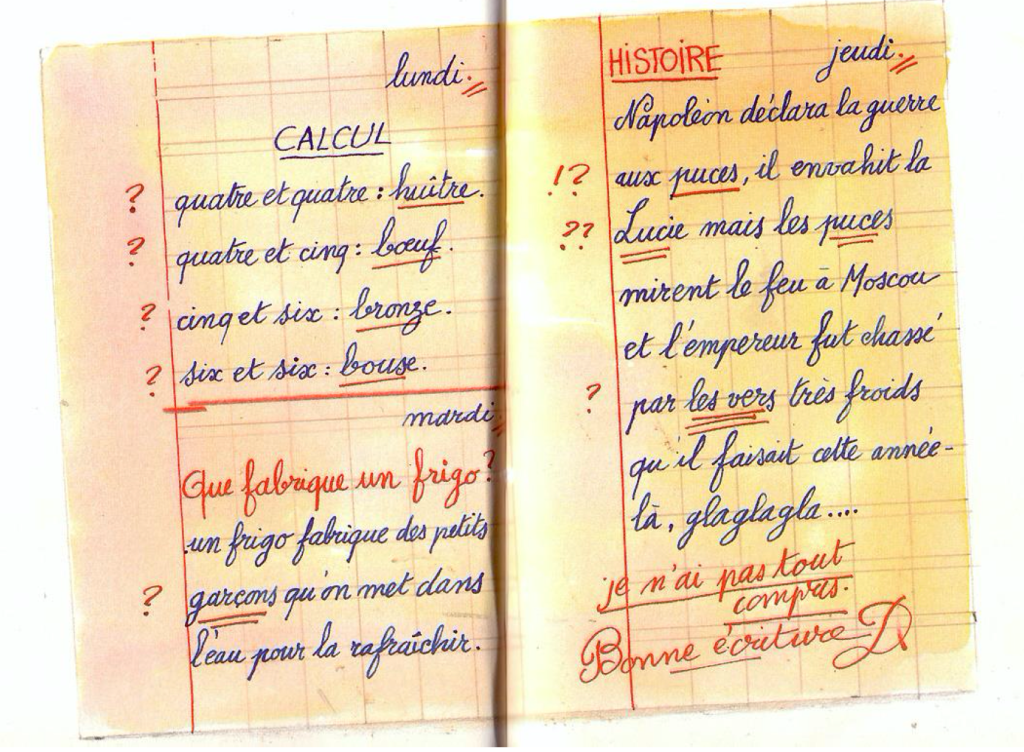 lundi.
CALCUL
? quatre et quatre : huître.
? quatre et cinq : bœuf.
? cinq et six : bronze.
? six et six : bouse.
mardi
Que fabrique un frigo?
un frigo fabrique des petits
? garçons qu'on met dans
l'eau pour la rafraîchir.
HISTOIRE jeudi.
Napoléon déclara la guerre
!? aux puces, il envahit la
?? Lucie mais les puces
mirent le feu à Moscou
et l'émpereur fut chassé
? par les vers très froids
qu'il faisait cette année-
là, glaglagla....
je n'ai pas tout
compris.
Bonne écriture